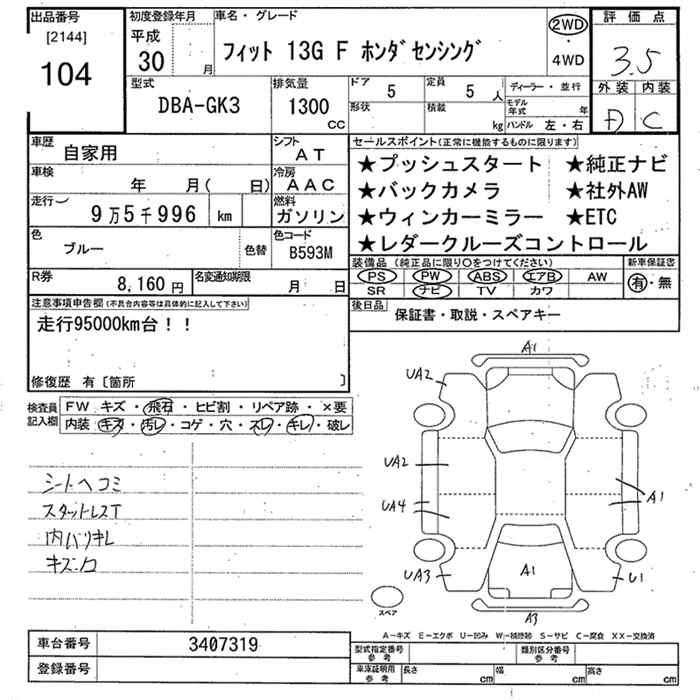 出品番号 初度登録年月 車名・グレード 評価点
[2144] 平成 2WD
104 30 月 フィット 13G F ホンダセンシング ・ 3.5
4WD
型式 排気量 ドア 5 定員 5 人 ディーラー・並行 外装 内装
DBA-GK3 1300 cc 形状 積載 kg モデル年式 年 D C
ハンドル 左・右
車歴 自家用 シフト AT セールスポイント(正常に機能するものに限ります)
車検 年 月( 日) 冷房 AAC ★プッシュスタート ★純正ナビ
走行 9万5千996 km 燃料 ガソリン ★バックカメラ ★社外AW
色 ブルー 色替 色コード B593M ★ウィンカーミラー ★ETC
★レダークルーズコントロール
R券 8,160円 名変通知期限 月 日 装備品(純正品に限り○をつけてください) 新車保証書
PS PW ABS エアB AW 有・無
SR ナビ TV カワ
注意事項申告欄(不具合内容等は具体的に記入して下さい) 後日品 保証書・取説・スペアキー
走行95000km台!!
修復歴 有〔箇所 〕
検査員記入欄 FW キズ・飛石・ヒビ割・リペア跡・×要
内装 キズ・汚レ・コゲ・穴・スレ・キレ・破レ
シートヘコミ
スタットレスT
内バリキレ
A1
UA2
UA2
UA4
A1
UA3
A1
U1
スペア
A3
A-キズ E-エクボ U-凹み W-補修跡 S-サビ C-腐食 XX-交換済
車台番号 3407319 型式指定番号 参考 類別区分番号 参考
登録番号 車庫証明用 参考 長さ cm 幅 cm 高さ cm